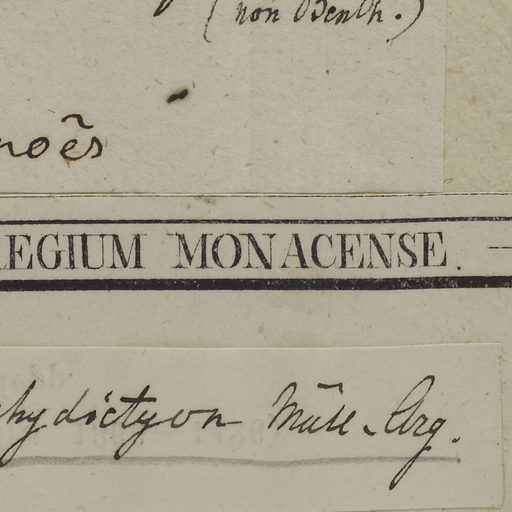 (non Benth.)
noẽs
REGIUM MONACENSE. —
hydictyon Müll. Arg.